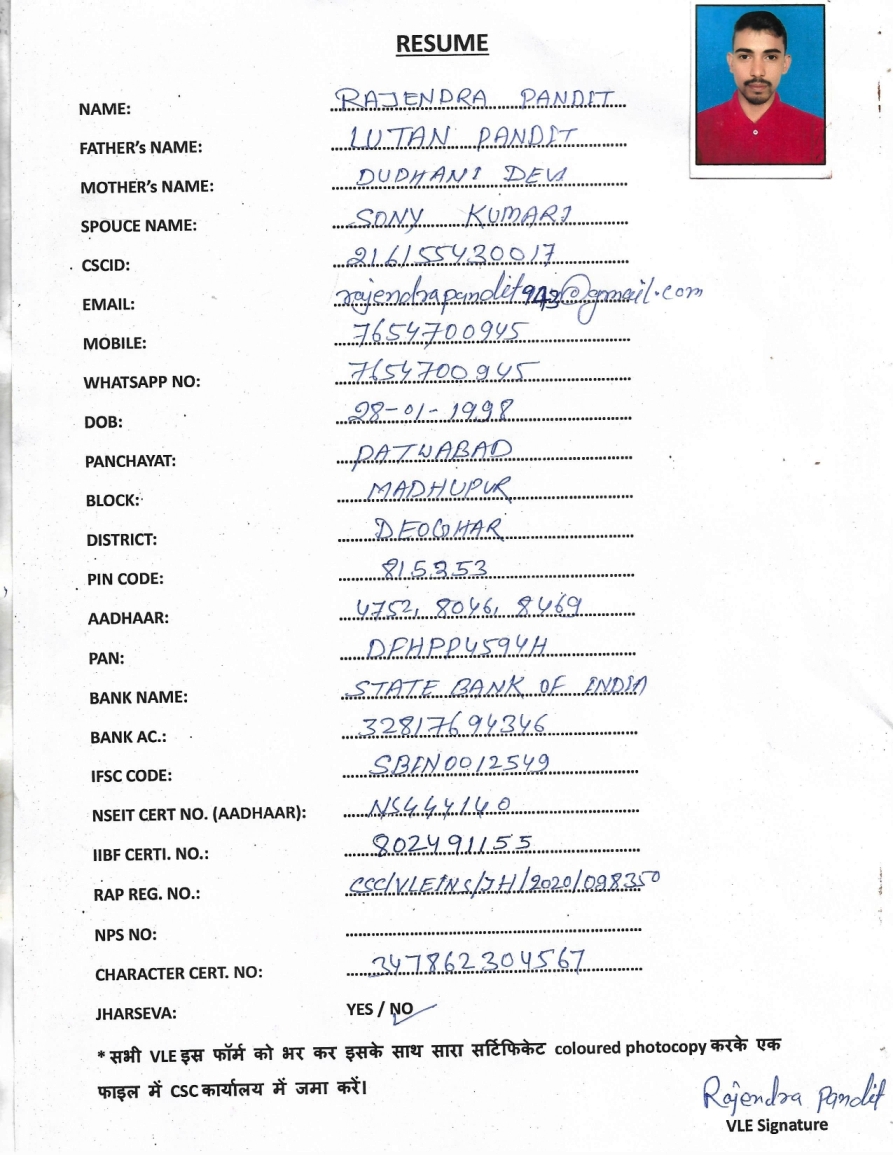 RESUME
NAME: RAJENDRA PANDIT
FATHER's NAME: LUTAN PANDIT
MOTHER's NAME: DUDHANI DEVI
SPOUCE NAME: SONY KUMARI
CSCID: 216155430017
EMAIL: rajendrapandit943@gmail.com
MOBILE: 7654700945
WHATSAPP NO: 7654700945
DOB: 28-01-1998
PANCHAYAT: PATWABAD
BLOCK: MADHUPUR
DISTRICT: DEOGHAR
PIN CODE: 815353
AADHAAR: 4752, 8046, 8469
PAN: DFHPP4594H
BANK NAME: STATE BANK OF INDIA
BANK AC.: 32817694346
IFSC CODE: SBIN0012549
NSEIT CERT NO. (AADHAAR): NS444140
IIBF CERTI. NO.: 802491155
RAP REG. NO.: CSC/VLEINS/JH/2020/098350
NPS NO:
CHARACTER CERT. NO: 347862304567
JHARSEVA: YES / NO
* सभी VLE इस फॉर्म को भर कर इसके साथ सारा सर्टिफिकेट coloured photocopy करके एक
फाइल में CSC कार्यालय में जमा करें।
Rajendra Pandit
VLE Signature